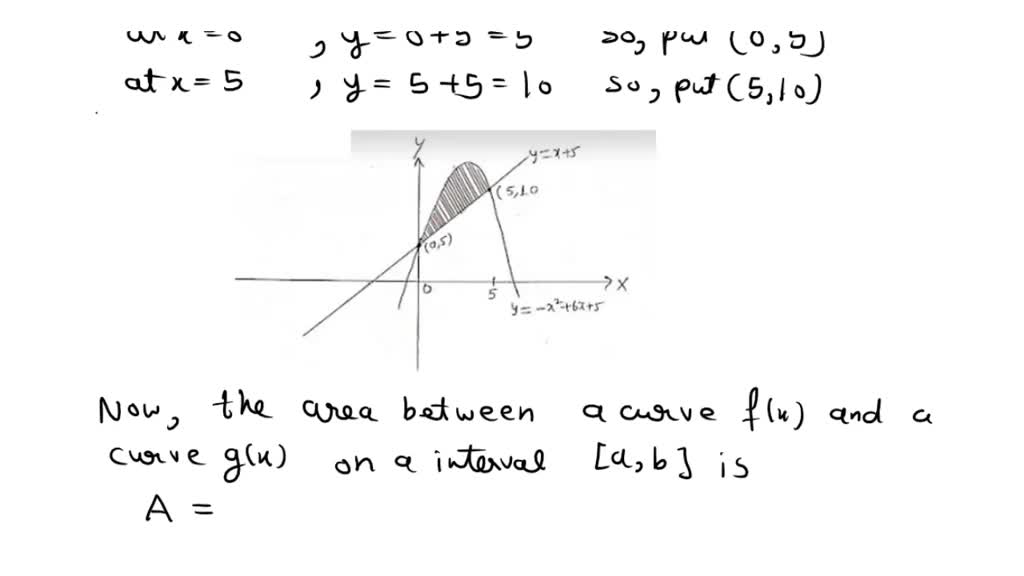 x=0 , y=0+5=5 so, put (0,5)
at x=5 , y=5+5=10 so, put (5,10)
y
y=x+5
(5,10
(0,5)
0
5
X
y=-x²+6x+5
Now, the area between a curve f(x) and a
curve g(x) on a interval [a,b] is
A =